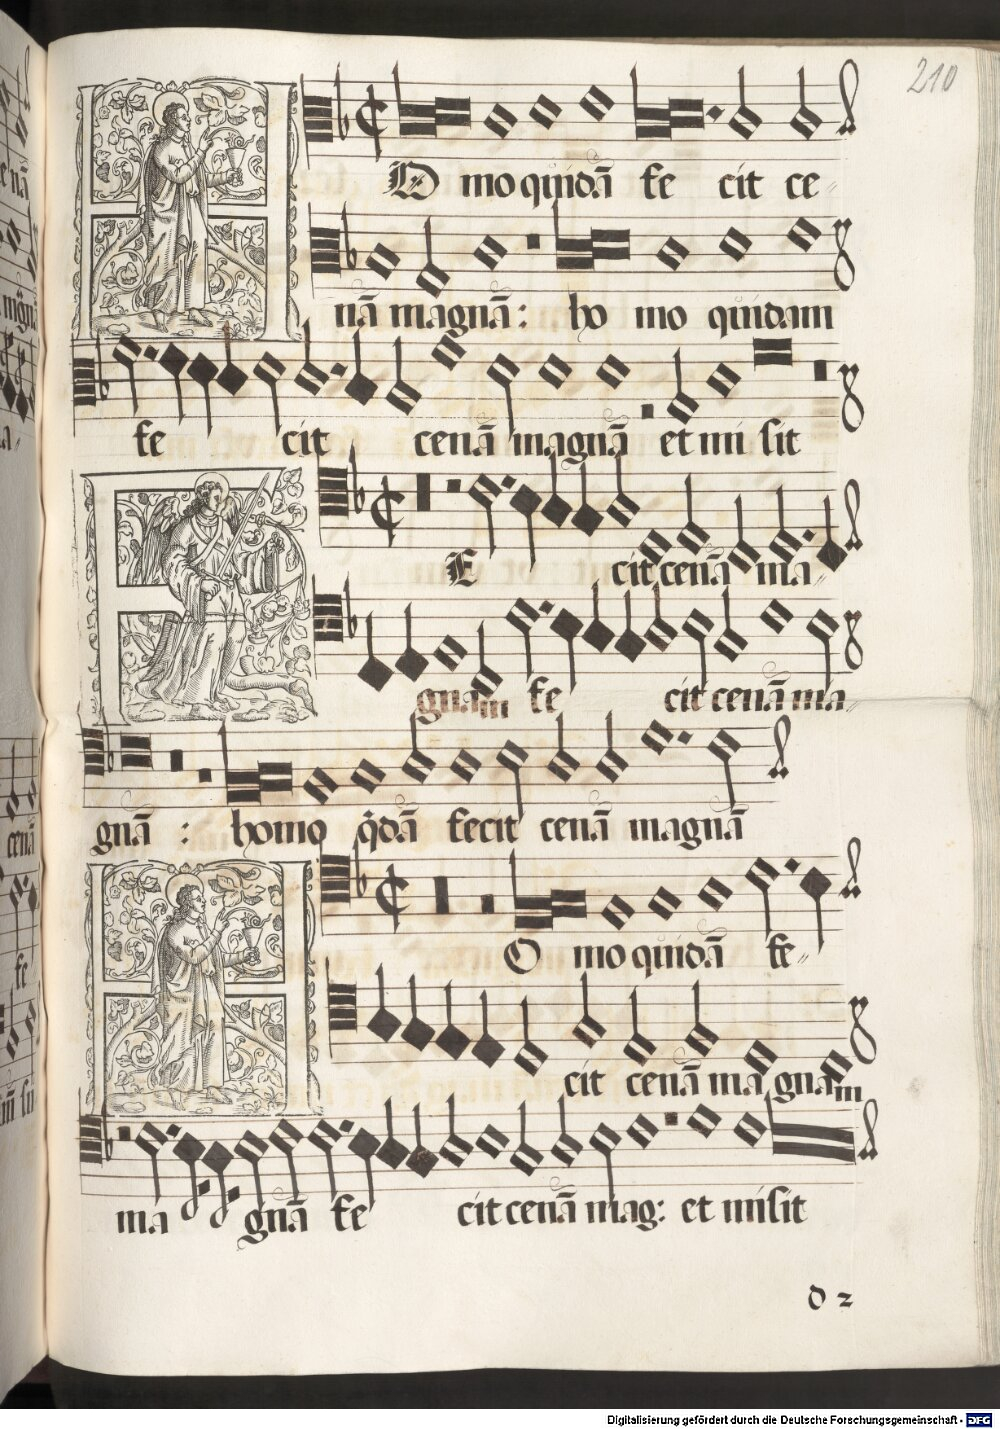 210
HO mo quidā fe cit ce„
nā magnā: ho mo quidam
fe cit cenā magnā et mi sit
FE cit cenā ma„
gnam fe cit cenā ma„
gnā: homo q̄dā fecit cenā magnā
HO mo quidā fe„
cit cenā ma gnam
ma gnā fe cit cenā mag: et misit
d 2
Digitalisierung gefördert durch die Deutsche Forschungsgemeinschaft - DFG